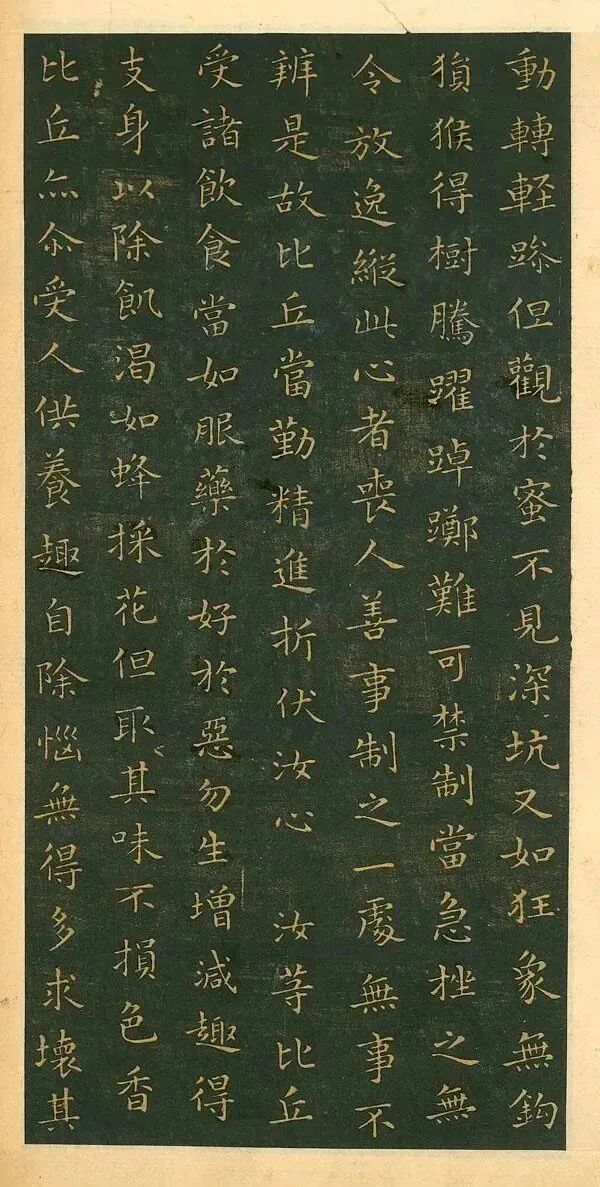 動轉輊躁但觀於蜜不見深坑又如狂象無鈎
猨猴得樹騰躍踔躑難可禁制當急挫之無
令放逸縱此心者喪人善事制之一處無事不
辦是故比丘當勤精進折伏汝心　汝等比丘
受諸飲食當如服藥於好於惡勿生增減趣得
支身以除飢渴如蜂採花但取其味不損色香
比丘亦尒受人供養趣自除惱無得多求壞其